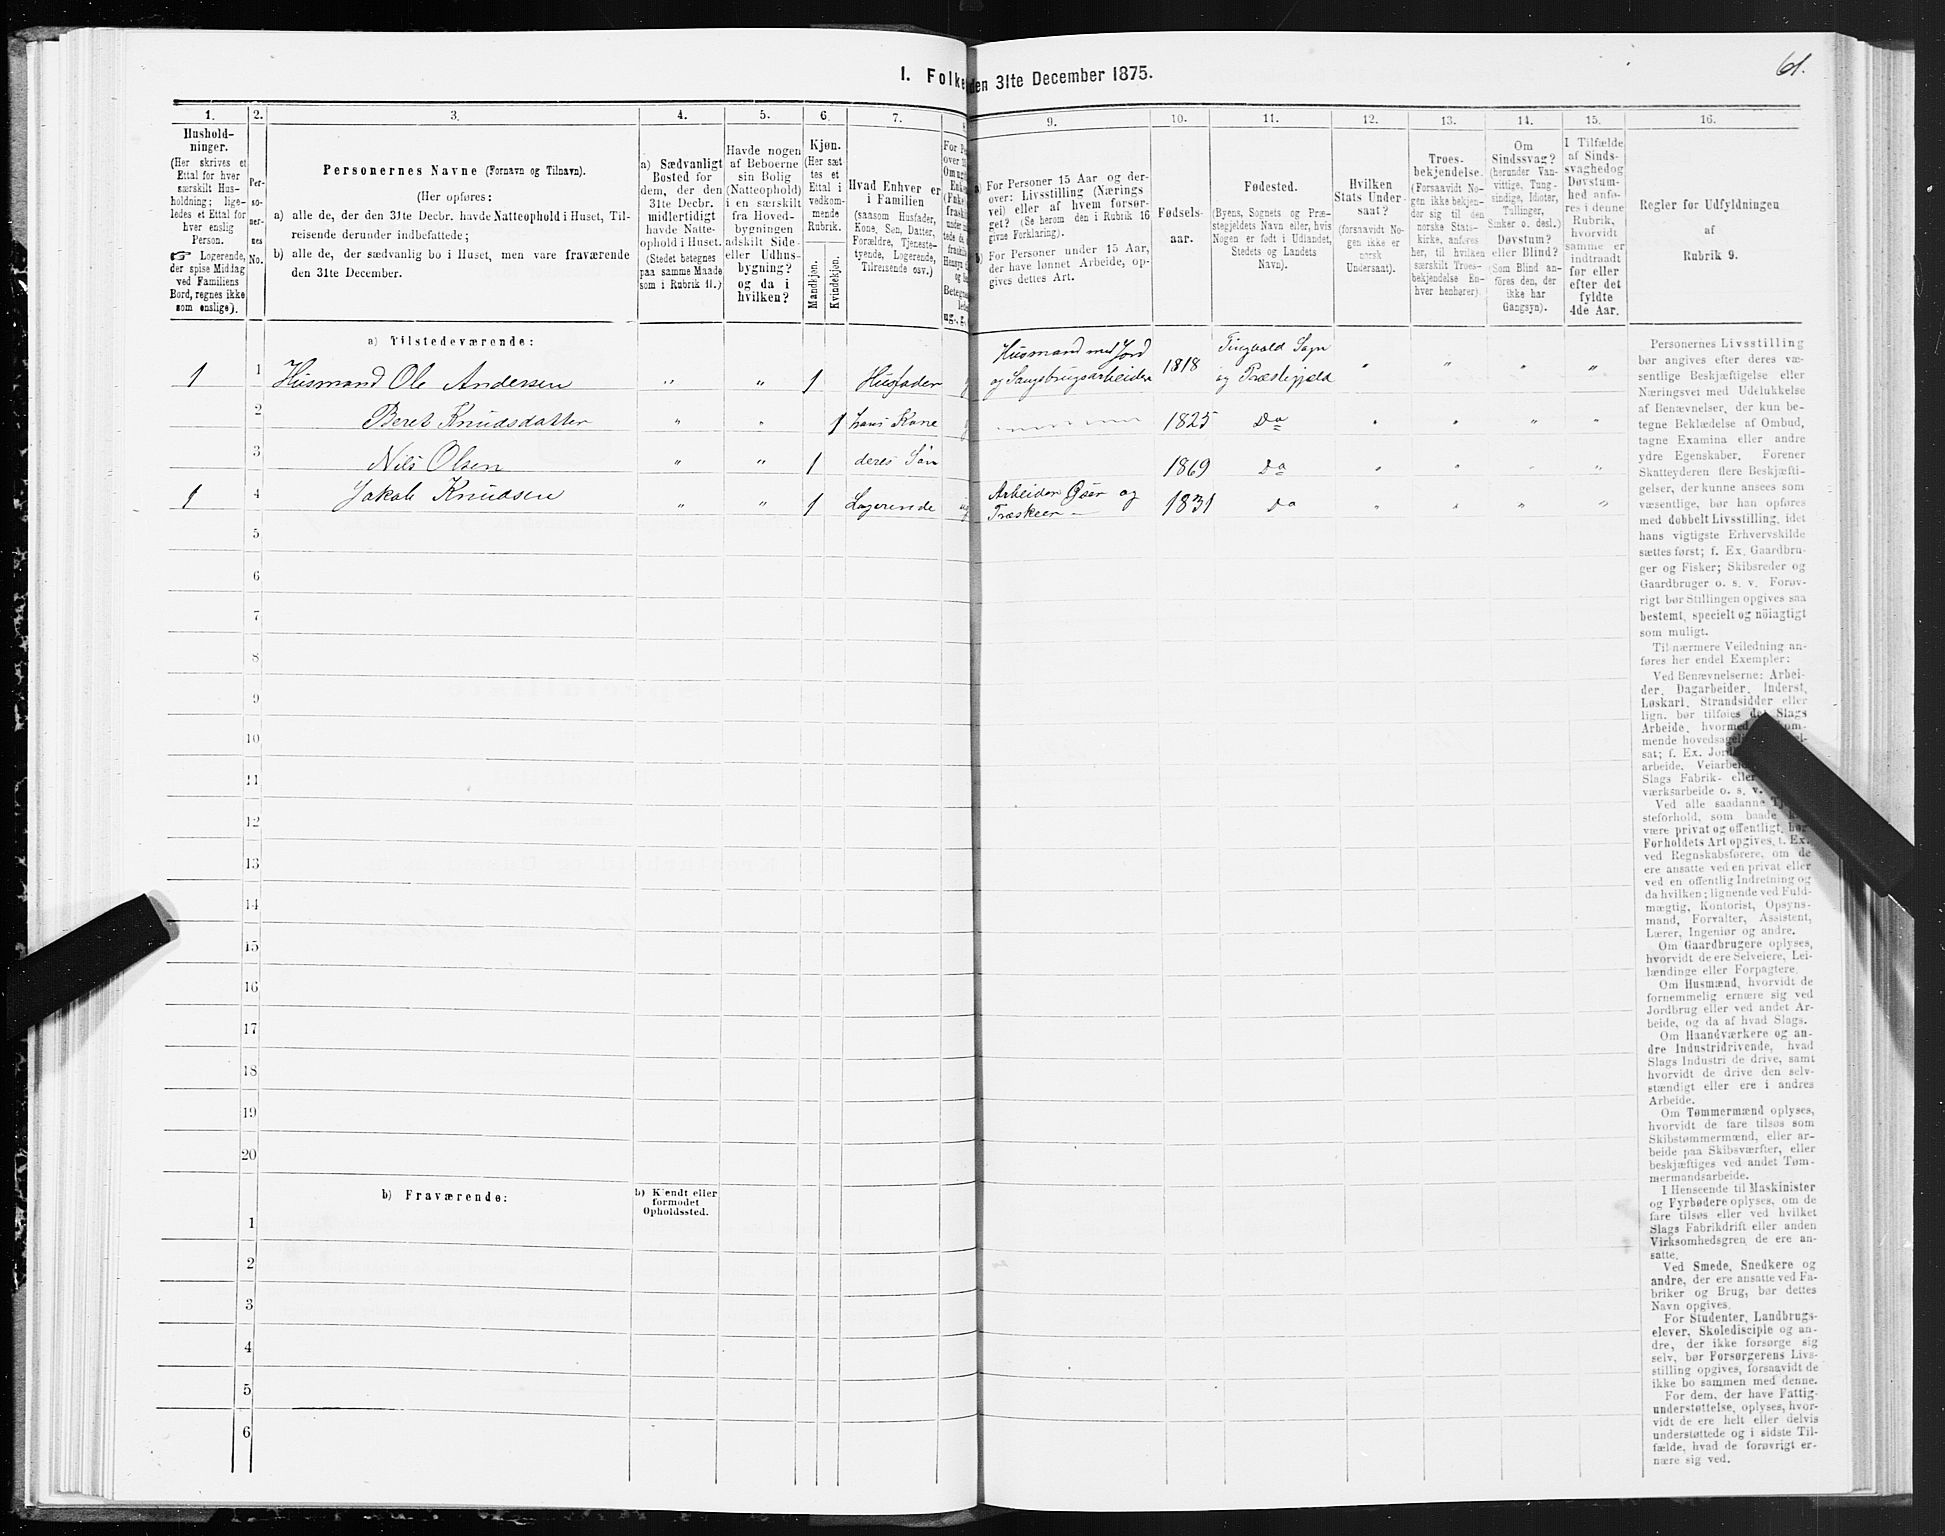 1. Folke den 31te December 1875.
61.
1. 2. 3. 4. 5. 6. 7. 8. 9. 10. 11. 12. 13. 14. 15. 16.
Hushold-
ninger.
(Her skrives et
Ettal for hver
særskilt Hus-
holdning; lige-
ledes et Ettal for
hver enslig
Person.
☞ Logerende,
der spise Middag
ved Familiens
Bord, regnes ikke
som enslige).
Per-
so-
ner-
nes
No.
Personernes Navne (Fornavn og Tilnavn).
(Her opføres:
a) alle de, der den 31te Decbr. havde Natteophold i Huset, Til-
reisende derunder indbefattede;
b) alle de, der sædvanlig bo i Huset, men vare fraværende
den 31te December.
a) Sædvanligt
Bosted for
dem, der den
31te Decbr.
midlertidigt
havde Natte-
ophold i Huset.
(Stedet betegnes
paa samme Maade
som i Rubrik 11.)
Havde nogen
af Beboerne
sin Bolig
(Natteophold)
i en særskilt
fra Hoved-
bygningen
adskilt Side-
eller Udhus-
bygning?
og da i
hvilken?
Kjøn.
(Her sæt
tes et
Ettal i
vedkom-
mende
Rubrik.
Mandkjøn.
Kvindekjøn.
Hvad Enhver er
i Familien
(saasom Husfader,
Kone, Søn, Datter,
Forældre, Tjeneste-
tyende, Logerende,
Tilreisende osv.)
a) For Personer 15 Aar og der-
over: Livsstilling (Nærings
vei) eller af hvem forsør-
get? (Se herom den i Rubrik 16
givne Forklaring).
b) For Personer under 15 Aar,
der have lønnet Arbeide, op-
gives dettes Art.
Fødsels-
aar.
Fødested.
(Byens, Sognets og Præ-
stegjeldets Navn eller, hvis
Nogen er født i Udlandet,
Stedets og Landets
Navn).
Hvilken
Stats Under-
saat?
(forsaavidt No-
gen ikke er
norsk
Undersaat).
Troes-
bekjendelse.
(Forsaavidt No-
gen ikke bekjen-
der sig til den
norske Stats-
kirke, anføres
her, til hvilken
særskilt Troes-
bekjendelse En-
hver henhører).
Om
Sindssvag?
(herunder Van-
vittige, Tung-
sindige, Idioter,
Tullinger,
Sinker o. desl.)
Døvstum?
eller Blind?
(Som Blind an-
føres den, der
ikke har
Gangsyn).
I Tilfælde
af Sinds-
svaghed og
Døvstum-
hed anfø-
res i denne
Rubrik,
hvorvidt
samme er
indtraadt
før eller
efter det
fyldte
4de Aar.
Regler for Udfyldningen
af
Rubrik 9.
a) Tilstedeværende:
1 1 Husmand Ole Andersen " " 1 Husfader g Husmand med Jord og Saugbrugsarbeider 1818 Tingvold Sogn og Præstegjæld " " " "
2 Beret Knudsdatter " " 1 hans Kone g 1825 Do " " " "
3 Nils Olsen " " 1 deres Søn 1869 Do " " " "
1 4 Jakob Knudsen " " 1 Logerende ug Arbeider Øser og Træskeer 1831 Do " " " "
5
6
7
8
9
10
11
12
13
14
15
16
17
18
19
20
b) Fraværende:
b) Kjendt eller
formodet
Opholdssted.
1
2
3
4
5
6
Personernes Livsstilling
bør angives efter deres væ-
sentlige Beskjæftigelse eller
Næringsvei med Udelukkelse
af Benævnelser, der kun be-
tegne Beklædelse af Ombud,
tagne Examina eller andre
ydre Egenskaber. Forener
Skatteyderen flere Beskjæfti-
gelser, der kunne ansees som
væsentlige, bør han opføres
med dobbelt Livsstilling, idet
hans vigtigste Erhvervskilde
sættes først; f. Ex. Gaardbru-
ger og Fisker; Skibsreder og
Gaardbruger o. s. v. Forøv-
rigt bør Stillingen opgives saa
bestemt, specielt og nöiagtigt
som muligt.
Til nærmere Veiledning an-
føres her endel Exempler:
Ved Benævnelserne: Arbei-
der, Dagarbeider, Inderst,
Løskarl, Strandsidder eller
lign. bør tilføies det Slags
Arbeide, hvormed
mende
sat; f. Ex.
arbeide,
Slags Fabrik- eller
værksarbeide o. s. v.
Ved alle saadanne
steforhold, som baade
være privat og offentligt, bør
Forholdets Art opgives, t. Ex.
ved Regnskabsførere, om de
ere ansatte ved en privat eller
ved en offentlig Indretning og
da hvilken; lignende ved Fuld-
mægtig, Kontorist, Opsyns-
mand, Forvalter, Assistent,
Lærer, Ingeniør og andre.
Om Gaardbrugere oplyses,
hvorvidt de ere Selveiere, Lei-
lændinge eller Forpagtere.
Om Husmænd, hvorvidt de
fornemmelig ernære sig ved
Jordbrug eller ved andet Ar-
beide, og da af hvad Slags.
Om Haandværkere og an-
dre Industridrivende, hvad
Slags Industri de drive, samt
hvorvidt de drive den selv-
stændigt eller ere i andres
Arbeide.
Om Tømmermænd oplyses,
hvorvidt de fare tilsøs som
Skibstømmermænd, eller ar-
beide paa Skibsværfter, eller
beskjæftiges ved andet Tøm-
mermandsarbeide.
I Henseende til Maskinister
og Fyrbødere oplyses, om de
fare tilsøs eller ved hvilket
Slags Fabrikdrift eller anden
Virksomhedsgren de ere an-
satte.
Ved Smede, Snedkere og
andre, der ere ansatte ved Fa-
briker og Brug, bør dettes
Navn opgives.
For Studenter, Landbrugs-
elever, Skoledisciple og an-
dre, der ikke forsørge sig
selv, bør Forsørgerens Livs-
stilling opgives, forsaavidt de
ikke bo sammen med denne.
For dem, der have Fattig-
understøttelse, oplyses, hvor-
vidt de ere helt eller delvis
understøttede og i sidste Til-
fælde, hvad de forøvrigt er-
nære sig ved.